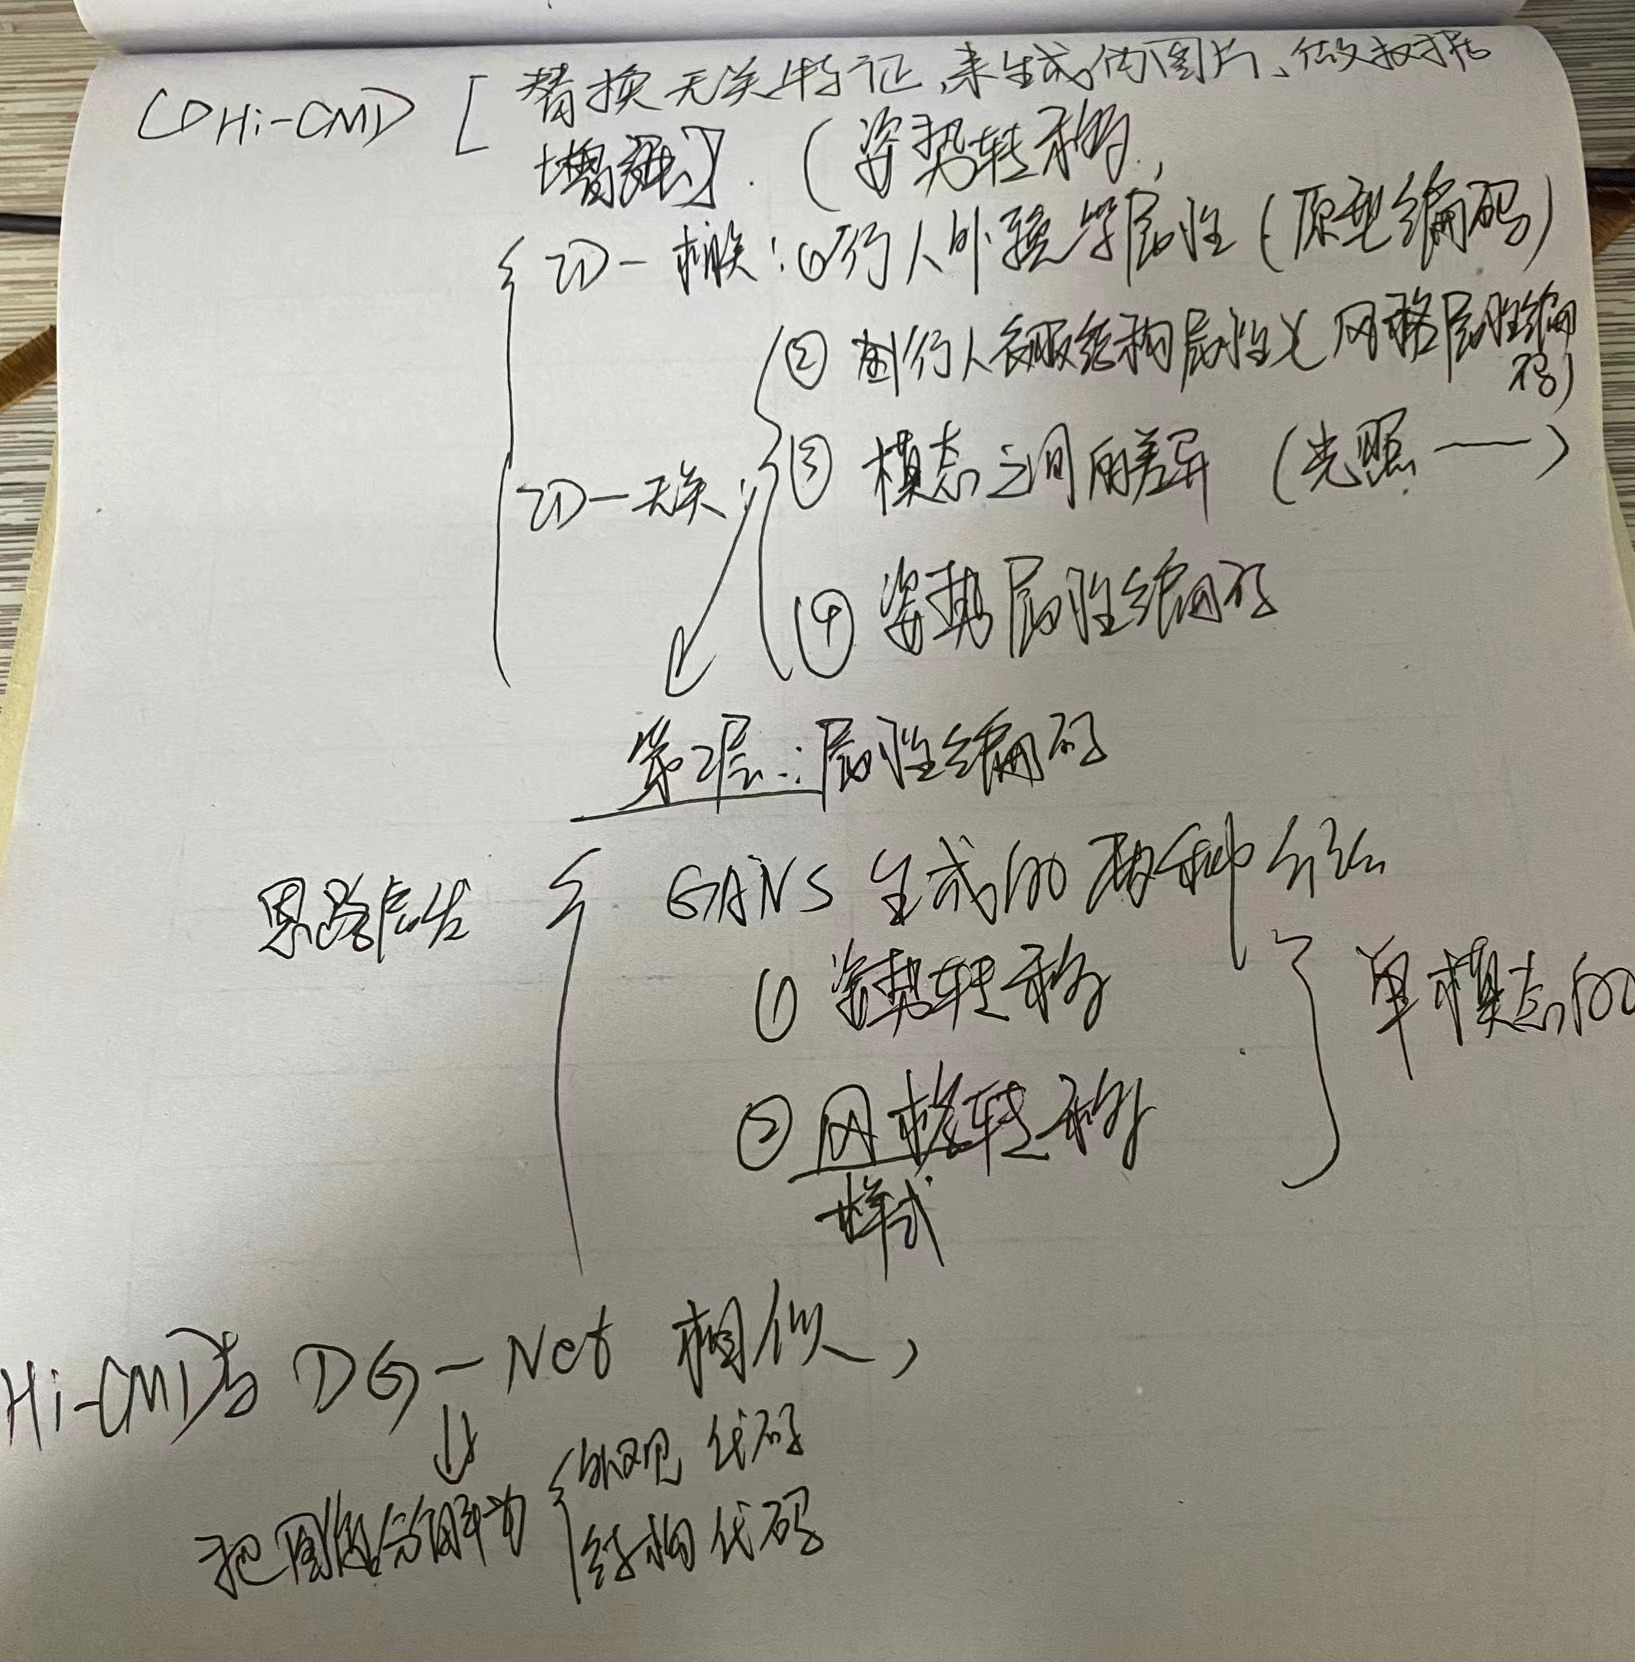 Hi-CMD [替换无关特征,来生成伪图片、做数据
增强]. (姿势转移,
ID-相关:①行人外貌等属性(原型编码)
②行人衣服结构属性(网格属性编
码)
ID-无关:③模态之间的差异(光照——)
④姿势属性编码
第2层:属性编码
思路启发
GANS 生成的两种方法
①姿势转移
单模态的
②网格转移
样式
Hi-CMD与DG-Net 相似,
把图像分解为
外观 代码
结构代码